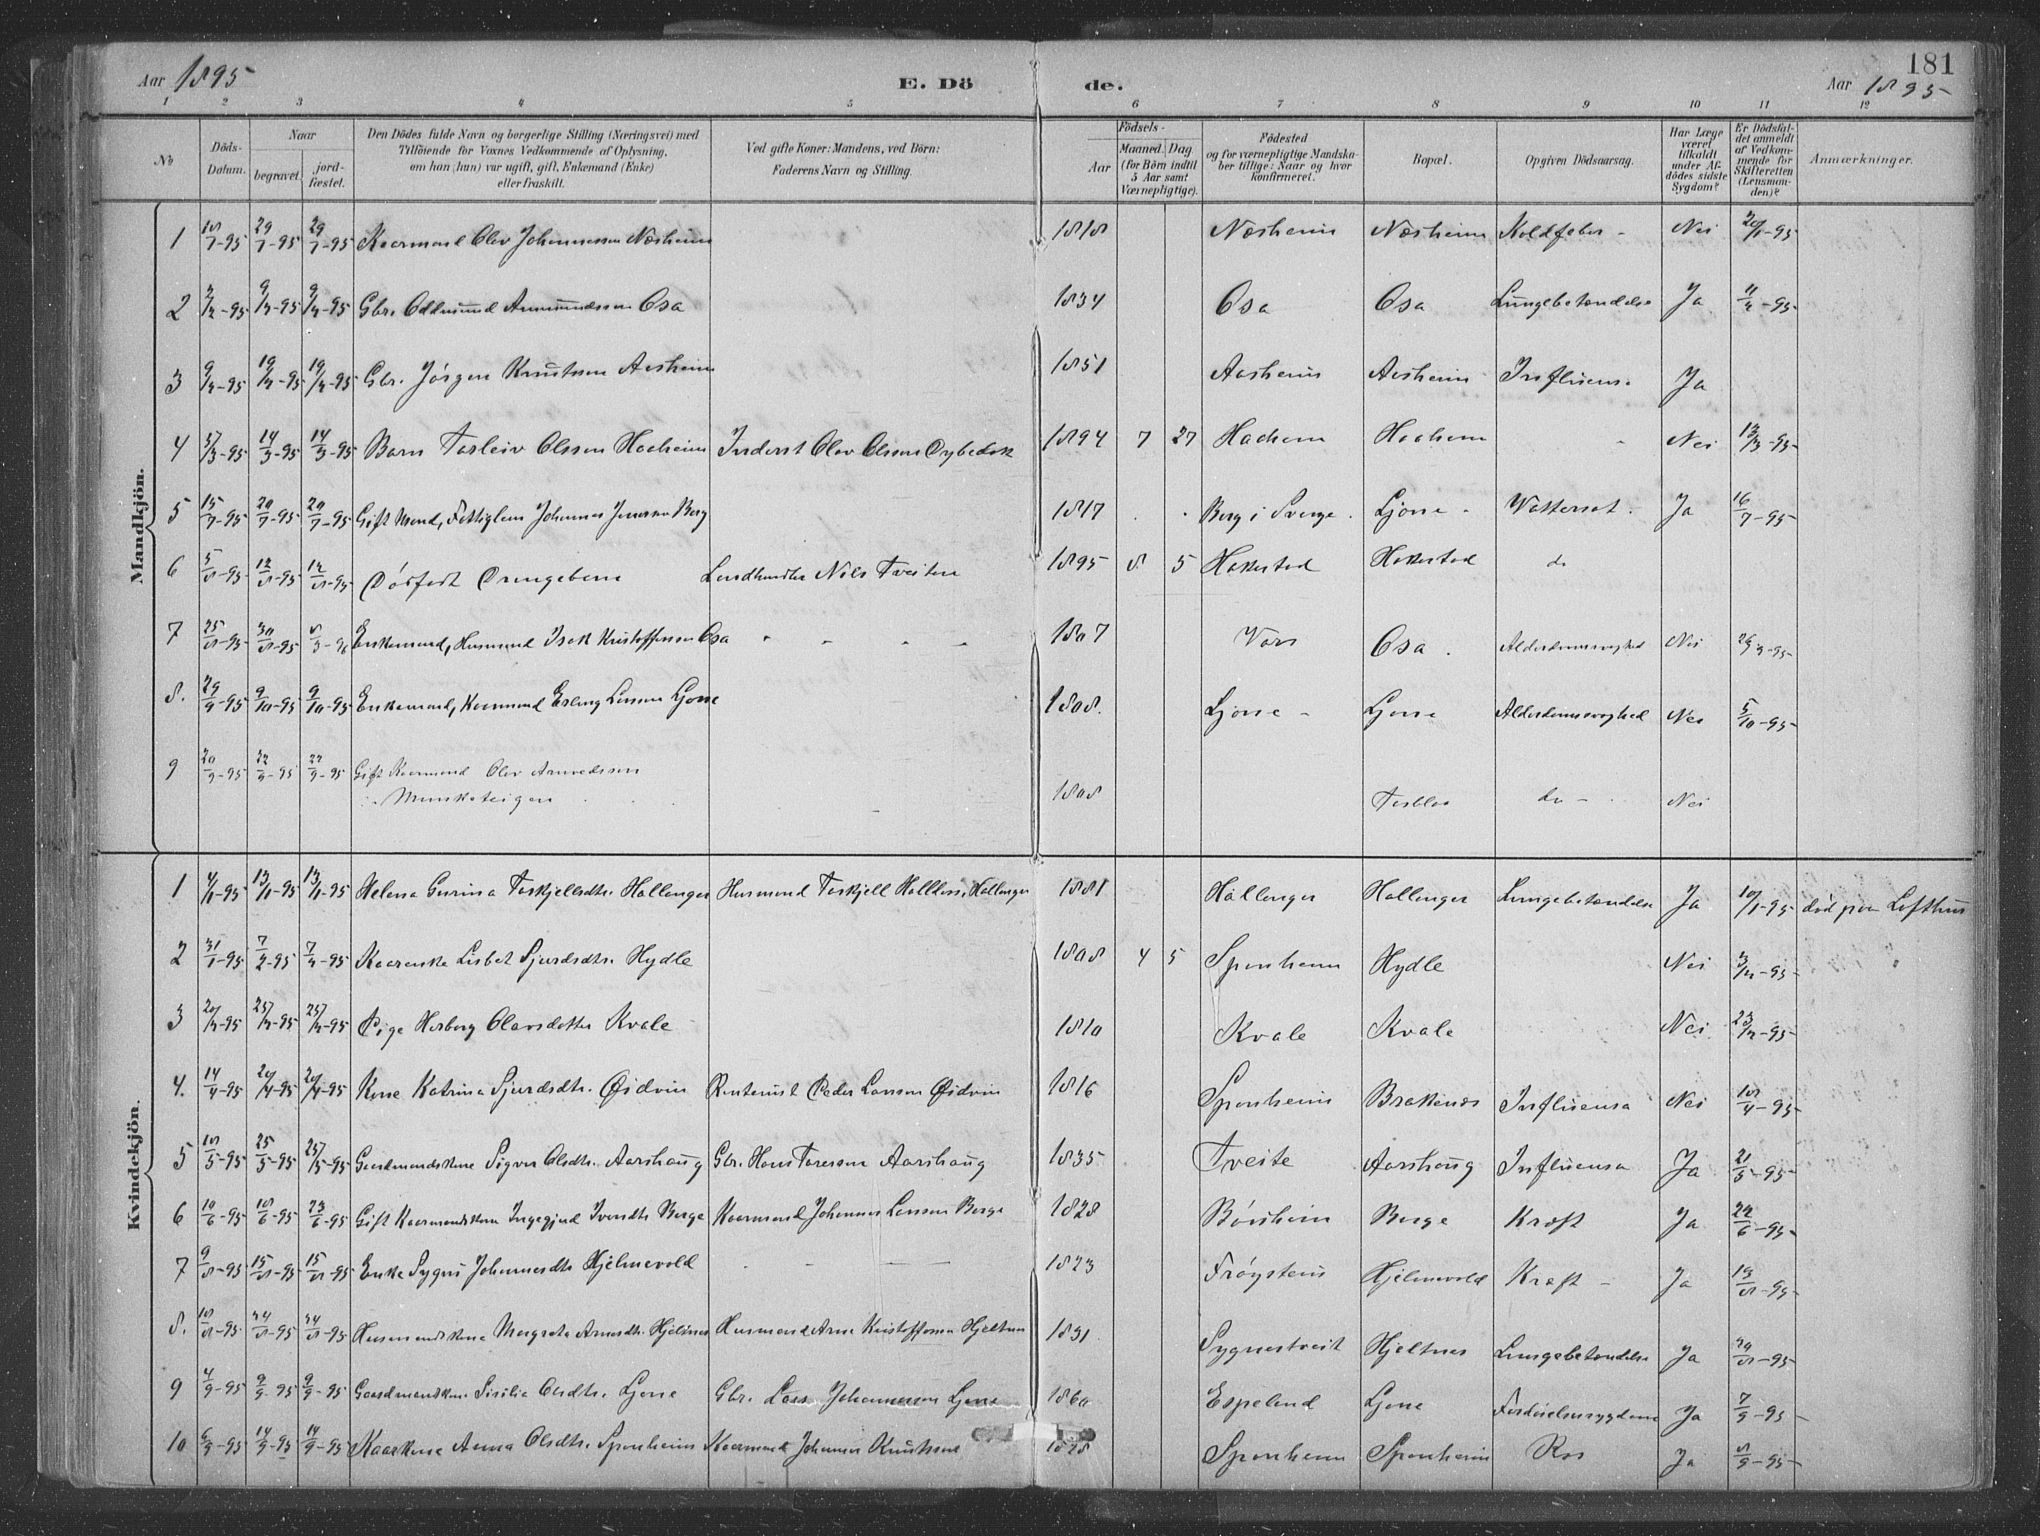 181
Aar 1895 E. Dö de. Aar 1895
1 2 3 4 5 6 7 8 9 10 11 12
No
Döds-Datum.
Naar
begravet.
jord-fæstet.
Den Dödes fulde Navn og borgerlige Stilling (Næringsvei) med
Tilföiende for Voxnes Vedkommende af Oplysning,
om han (hun) var ugift, gift, Enkemand (Enke)
eller fraskilt.
Ved gifte Koner: Mandens, ved Börn:
Faderens Navn og Stilling.
Födsels-
Aar
Maaned. Dag
(for Börn indtil
5 Aar samt
Værnepligtige).
Födested
og for værnepligtige Mandska-
ber tillige: Naar og hvor
konfirmeret.
Bopæl.
Opgiven Dödsaarsag.
Har Læge
været
tilkaldt
under Af-
dödes sidste
Sygdom?
Er Dödsfal-
det anmeldt
af Vedkom-
mende for
Skifteretten
(Lensman-
den)?
Anmærkninger.
Mandkjön.
1 18/1-95 29/1-95 29/1-95 Kaarmand Olav Johannesson Næsheim 1818 Næsheim Næsheim Koldfeber - Nei 20/1-95
2 3/2-95 9/2-95 9/2-95 Gbr. Oddmund Amundsson Osa 1834 Osa Osa Lungebetændelse Ja 11/2-95
3 9/2-95 19/2-95 19/2-95 Gbr. Jörgen Knutson Aasheim 1851 Aasheim Aasheim Influensa Ja
4 14/3-95 14/3-95 Barn Torleiv Olsson Haaheim Inderst Olav Olsson Dybedok 1894 7 27 Haaheim Haaheim Nei 13/3-95
5 15/7-95 20/7-95 20/7-95 Gift Mand, Fattiglem Johannes Berg 1817 Berg i Sverge Ljone - Vattersot - Ja 16/7-95
6 5/8-95 12/8-95 12/8-95 Dödfödt Drengebarn Landhandler Nils Tveiten 1895 8 5 Hakestad Hakestad do
7 25/8-95 30/8-95 Enkemand, Husmand Isak Kristoffersson Osa 1807 Vors Osa Alderdomssvaghed Nei
8. 29/9-95 9/10-95 9/10-95 Enkemand, Kaarmand Erling Larsson Ljone 1808. Ljone - Ljone Alderdomssvaghed Nei 5/10-95
9 20/9-95 22/9-95 22/9-95 Gift Kaarmand Olav
Munketeigen 1808 Torblaa do - Nei
Kvindekjön.
1 4/1-95 13/1-95 13/1-95 Helena Gurina Torkjellsdtr. Hallanger Husmand Torkjell Hallanger 1881 Hallanger Hallanger Lungebetændelse Ja 10/1-95 död paa Lofthus
2 31/1-95 7/2-95 7/2-95 Kaarenke Lisbet Sjurdsdtr. Hydle 1808 4 5 Sponheim Hydle Nei 3/2-95
3 20/2-95 25/2-95 25/2-95 Pige Herborg Olavsdotter Kvale 1810 Kvale Kvale Nei 23/2-95
4. 14/4-95 20/4-95 20/4-95 Kone Katrina Sjurdsdtr. Øidvin Rentenist Peder Larsson Øidvin 1816 Sponheim Brakenes Influensa Nei 18/4-95
5 18/5-95 25/5-95 25/5-95 Gaardmandskone Sigver Olsdtr. Aarshaug Gbr. Hans Toresson Aarshaug 1835 Tveite Aarshaug Influensa Ja 21/5-95
6 10/6-95 18/6-95 23/6-95 Gift Kaarmandskone Ingegjerd Ivarsdtr Berge Kaarmand Johannes Larsson Berge 1828 Berge Kræft Ja 22/6-95
7 9/8-95 15/8-95 15/8-95 Enke Sygni Johannesdtr Hjelmevold 1823 Fröystein Hjelmevold Kræft - Ja 13/8-95
8. 18/8-95 24/8-95 24/8-95 Husmandskone Margreta Arnesdtr. Hjeltnes Husmand Arne Kristoffersson Hjeltnes 1831 Sygnestveit Hjeltnes Lungebetændelse Ja 20/8-95
9 4/9-95 9/9-95 9/9-95 Gaardmandskone Sisilia Olsdtr. Ljone Gbr. Lars Johannesson Ljone 1860 Espeland Ljone Ja 7/9-95
10 6/9-95 14/9-95 14/9-95 Kaarkone Anna Olsdtr. Sponheim Kaarmand Johannes Knutson 1828 Sponheim Sponheim Ros Ja 8/9-95